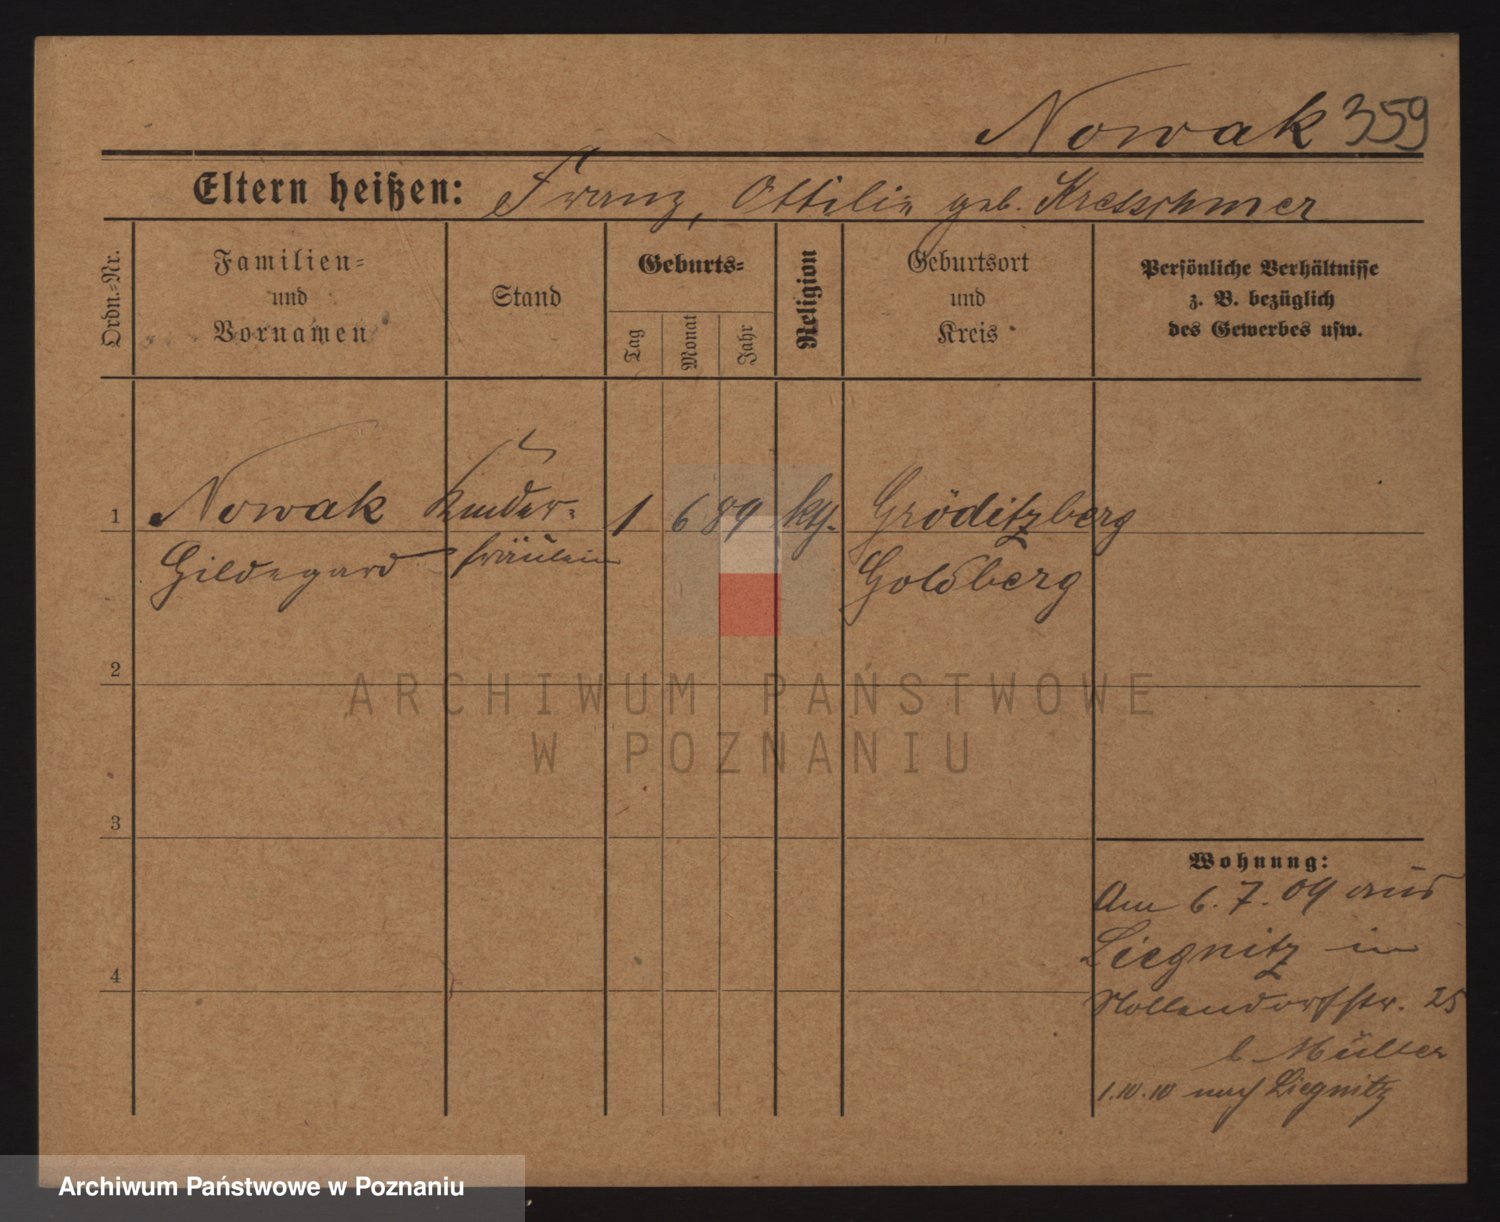 Nowak 359
Eltern heißen: Franz, Ottilie geb. Kretschmer
Ordn.-Nr.
Familien-
und
Vornamen
Stand
Geburts-
Tag
Monat
Jahr
Religion
Geburtsort
und
Kreis
Persönliche Verhältnisse
z. B. bezüglich
des Gewerbes usw.
1 Nowak Kinder- 1 6 89 kth. Gröditzberg
Hildegard fräulein Goldberg
2
3
4
Wohnung:
Am 6. 7. 09 aus
Liegnitz in
Nollendorfstr. 25
b. Müller
1.10.10 nach Liegnitz
ARCHIWUM PAŃSTWOWE
W POZNANIU
Archiwum Państwowe w Poznaniu